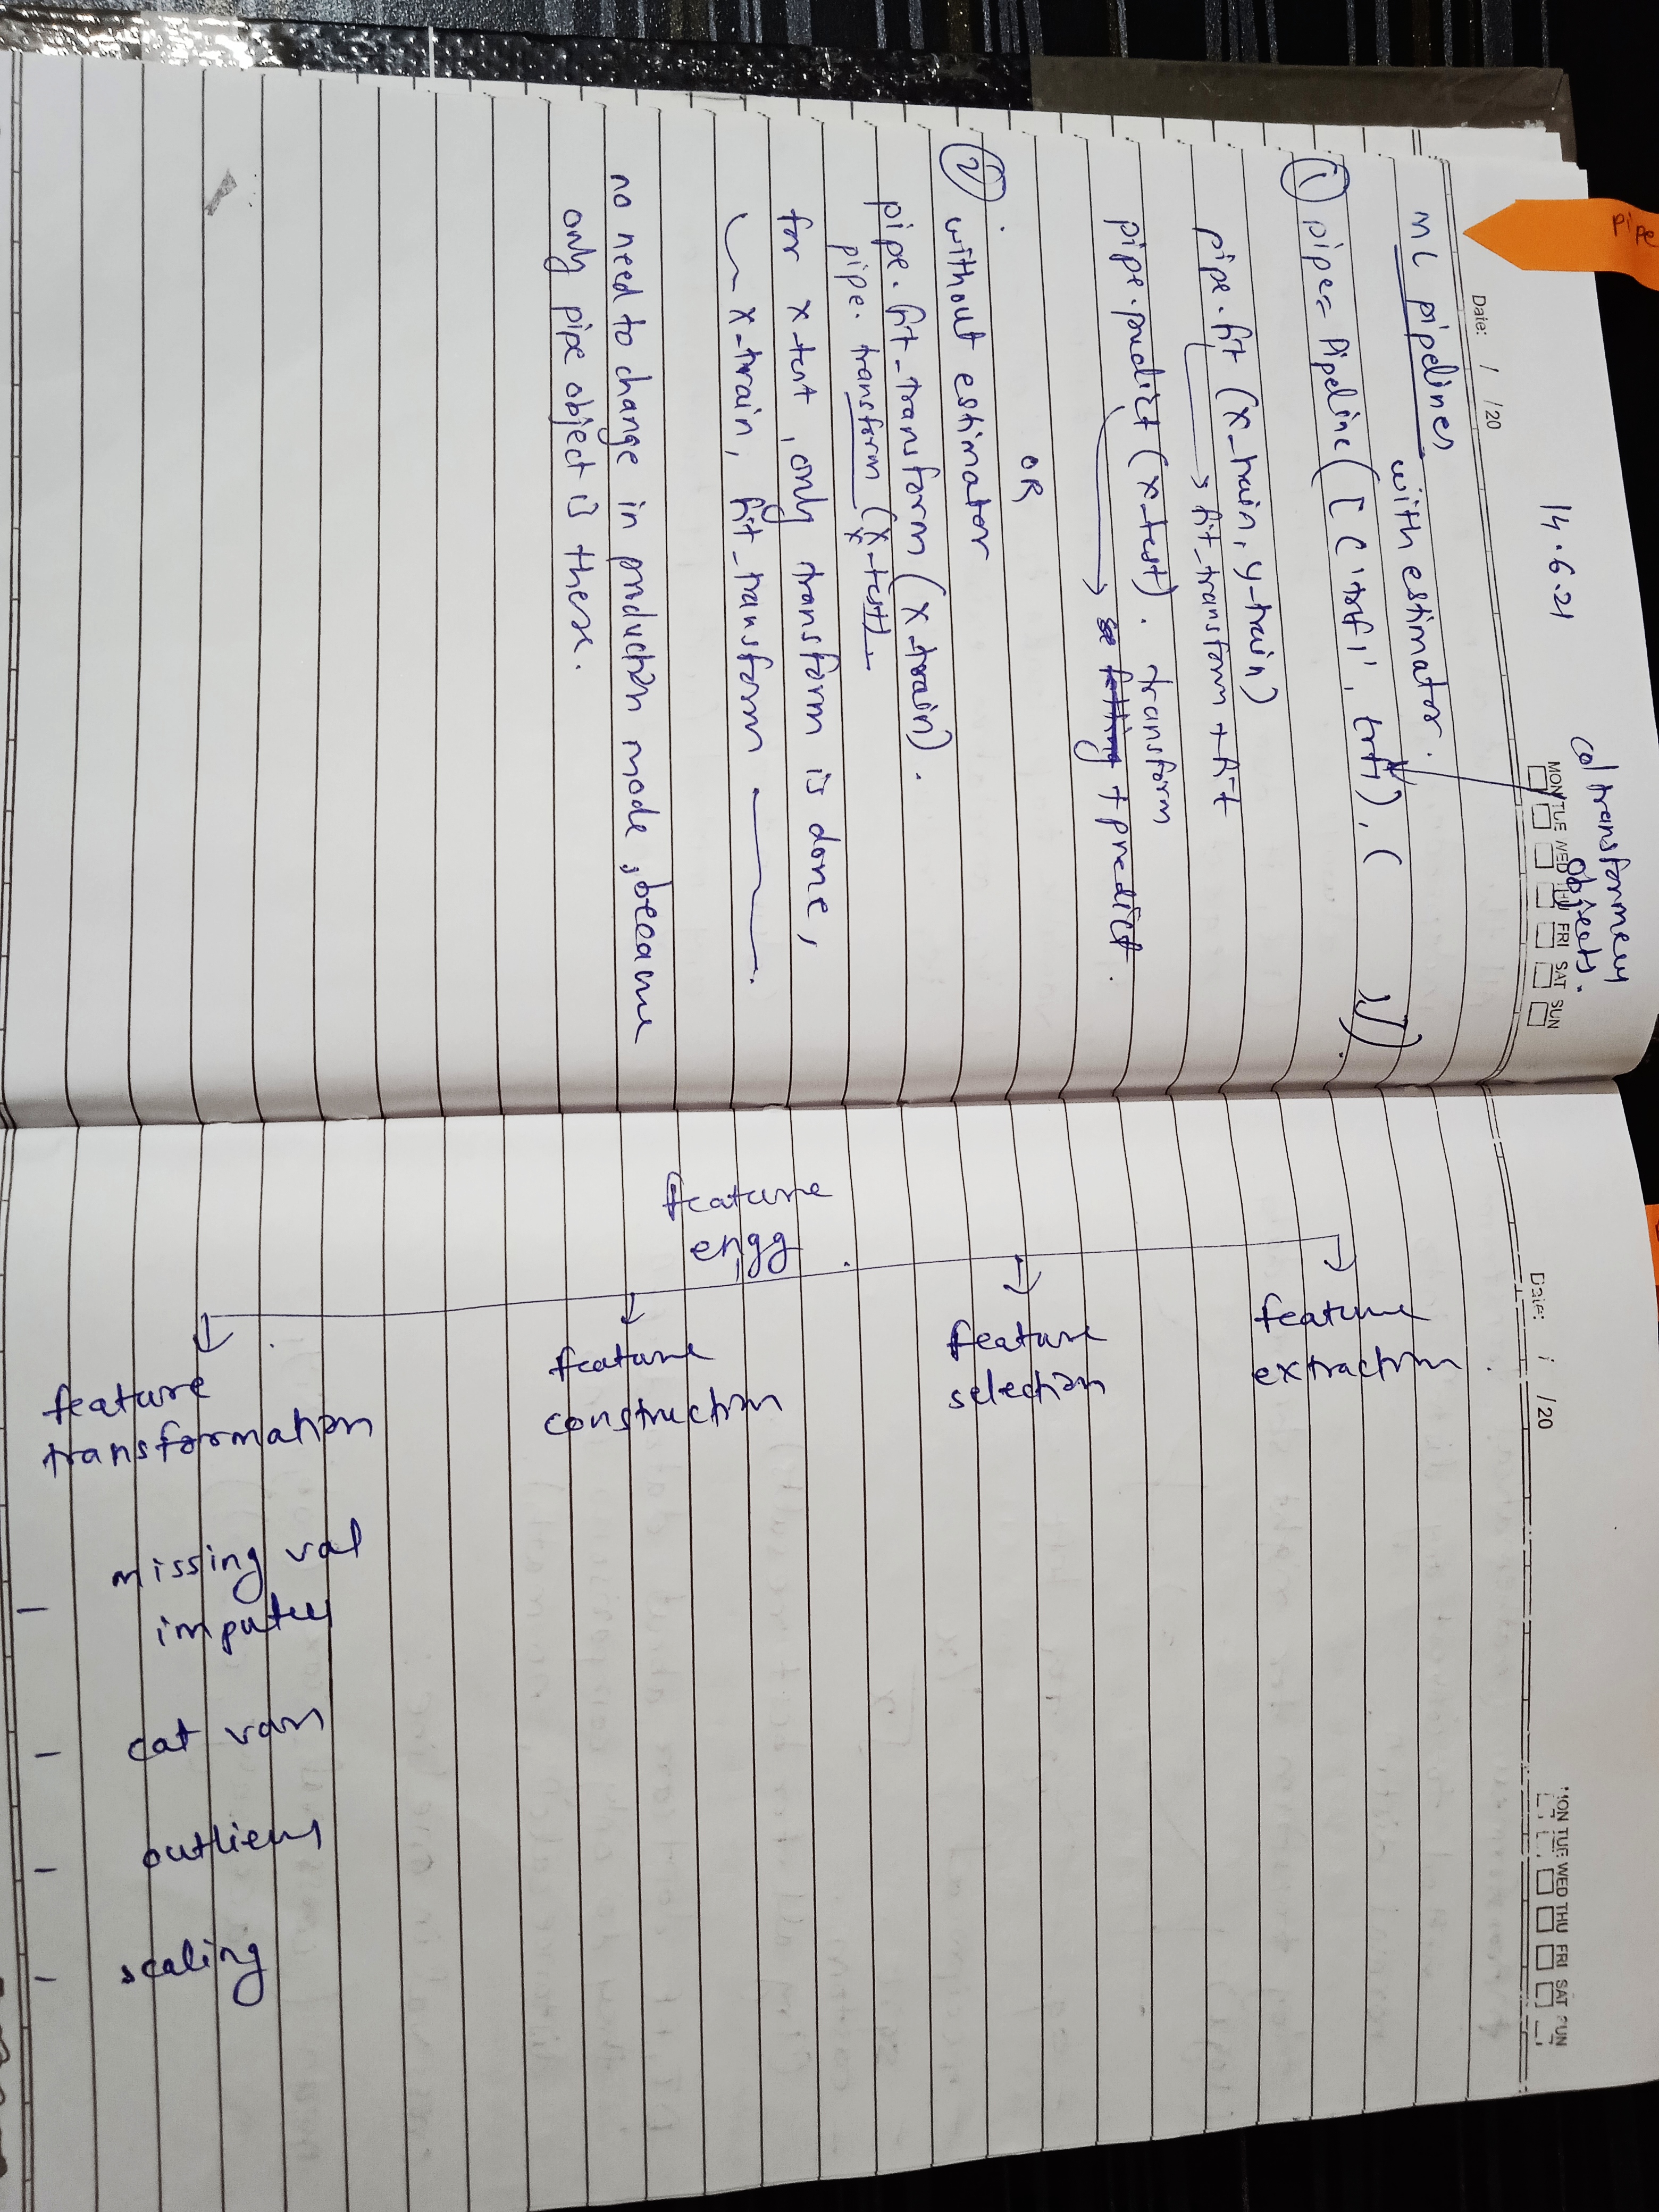 pipe
Date: / /20
14.6.21
col transformers
objects.
MON TUE WED THU FRI SAT SUN
ML pipelines
with estimator.
① pipe = Pipeline ([ ('trf1', trf1), ( ])
pipe.fit (x_train, y_train)
→ fit_transform + fit
pipe.predict (x_test). transform
→ + predict.
OR
② without estimator
pipe.fit_transform (x_train).
pipe.transform (x_test)
for x_test, only transform is done,
x_train, fit_transform
no need to change in production mode, because
only pipe object is there.
Date: / /20
MON TUE WED THU FRI SAT SUN
feature
engg
feature
transformation
feature
construction
feature
selection
feature
extraction
- missing val
imputes
- cat vars
- outliers
- scaling